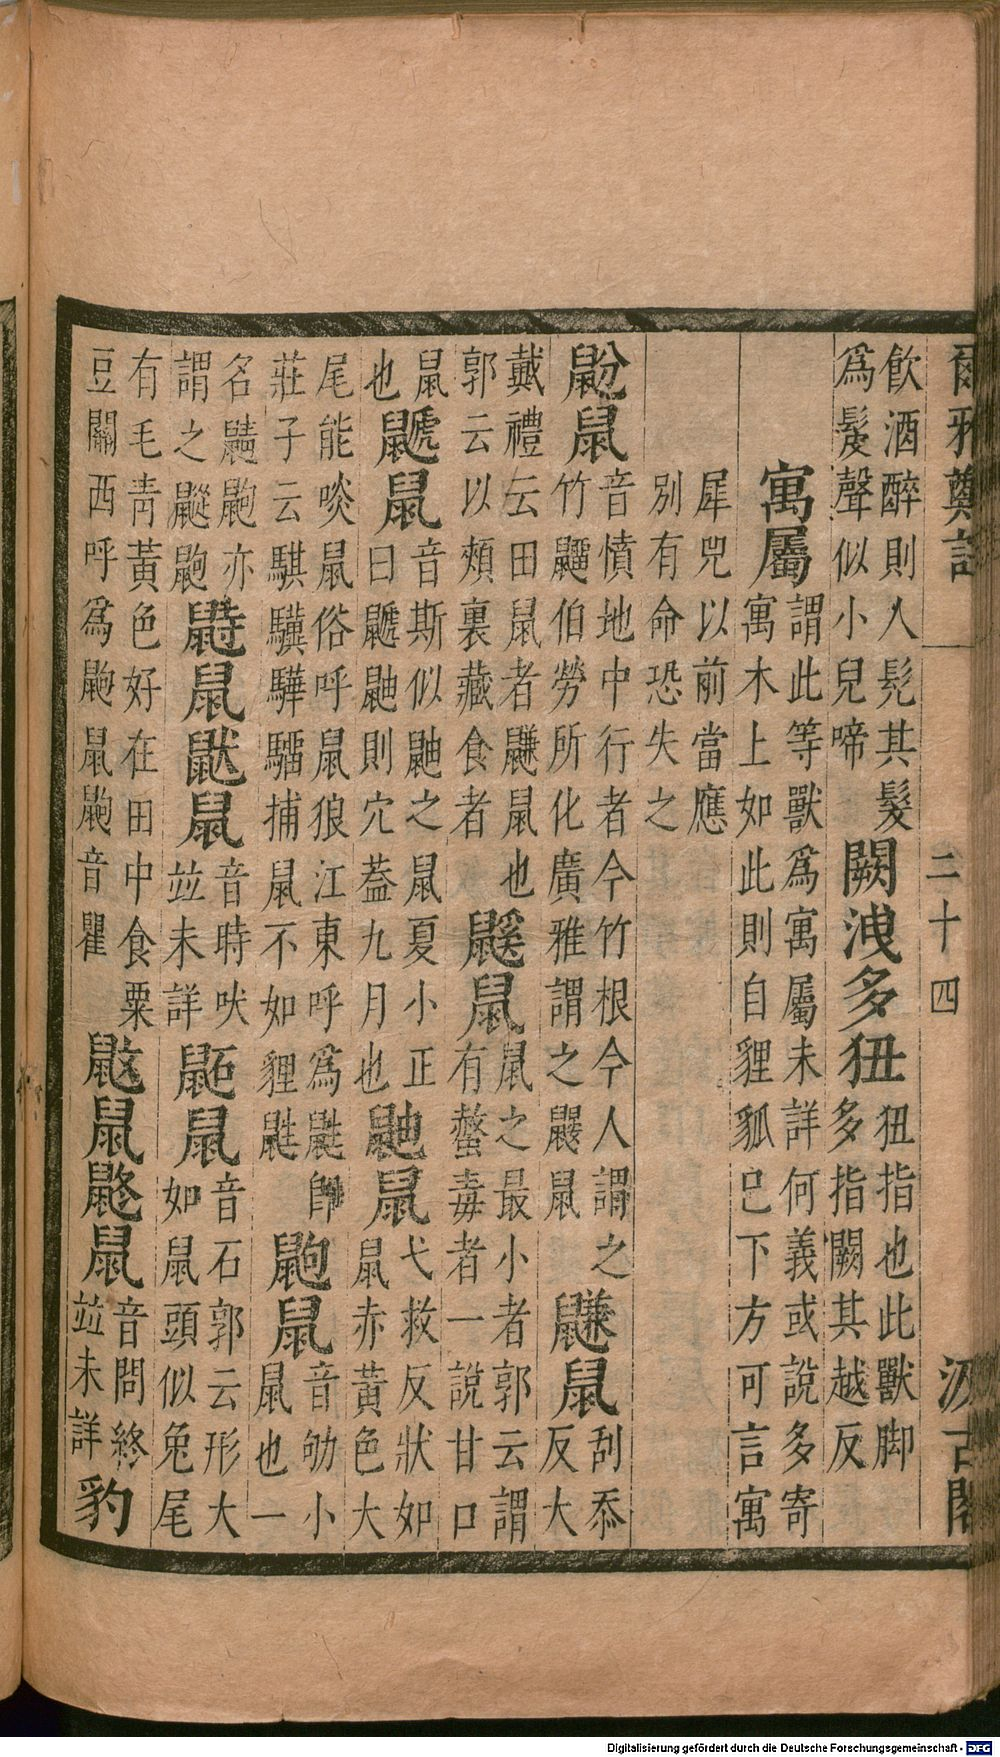 爾雅鄭註 二十四 汲古閣
飲酒醉則人髡其髮
為髲聲似小兒啼
闕洩多狃
狃指也此獸脚
多指闕其越反
寓屬
謂此等獸為寓屬未詳何義或說多寄
寓木上如此則自貍狐已下方可言寓
犀兕以前當應
別有命恐失之
鼢鼠
音憤地中行者今竹根今人謂之
竹䶉伯勞所化廣雅謂之鼴鼠
鼸鼠
刮忝
反大
戴禮云田鼠者鼸鼠也
郭云以頰裏藏食者
鼷鼠
鼠之最小者郭云謂
有螫毒者一說甘口
鼠
也
鼶鼠
音斯似鼬之鼠夏小正
曰鼶鼬則穴蓋九月也
鼬鼠
弋救反狀如
鼠赤黃色大
尾能啖鼠俗呼鼠狼江東呼為鼪
莊子云騏驥驊騮捕鼠不如貍鼪
鼩鼠
音劬小
鼠也一
名鼱鼩亦
謂之䶐鼩
鼭鼠鼣鼠
音時吠
竝未詳
鼫鼠
音石郭云形大
如鼠頭似兔尾
有毛青黃色好在田中食粟
豆關西呼為鼩鼠鼩音瞿
鼤鼠鼨鼠
音問終
竝未詳
豹
Digitalisierung gefördert durch die Deutsche Forschungsgemeinschaft - DFG